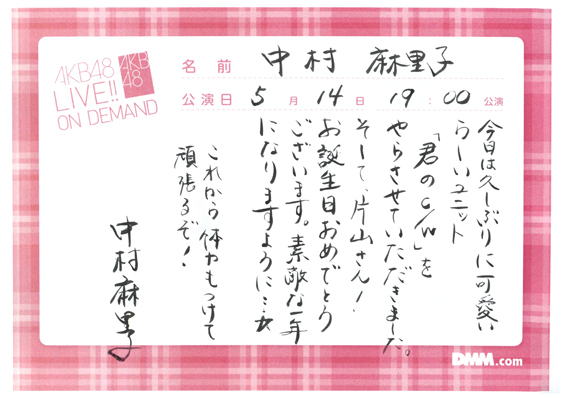 AKB48
LIVE!!
ON DEMAND
AKB
48
名前 中村 麻里子
公演日 5月14日 19:00公演
今日は久しぶりに可愛い
らしいユニット
「君のc/w」を
やらさせていただきました。
そして、片山さん!
お誕生日おめでとう
ございます。素敵な一年
になりますように…☆
これから体力もつけて
頑張るぞ!
中村麻里子
DMM.com